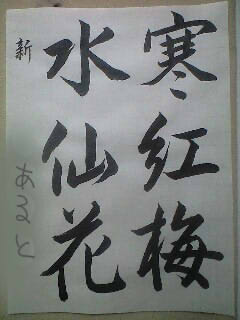 寒紅梅
水仙花
新
あると